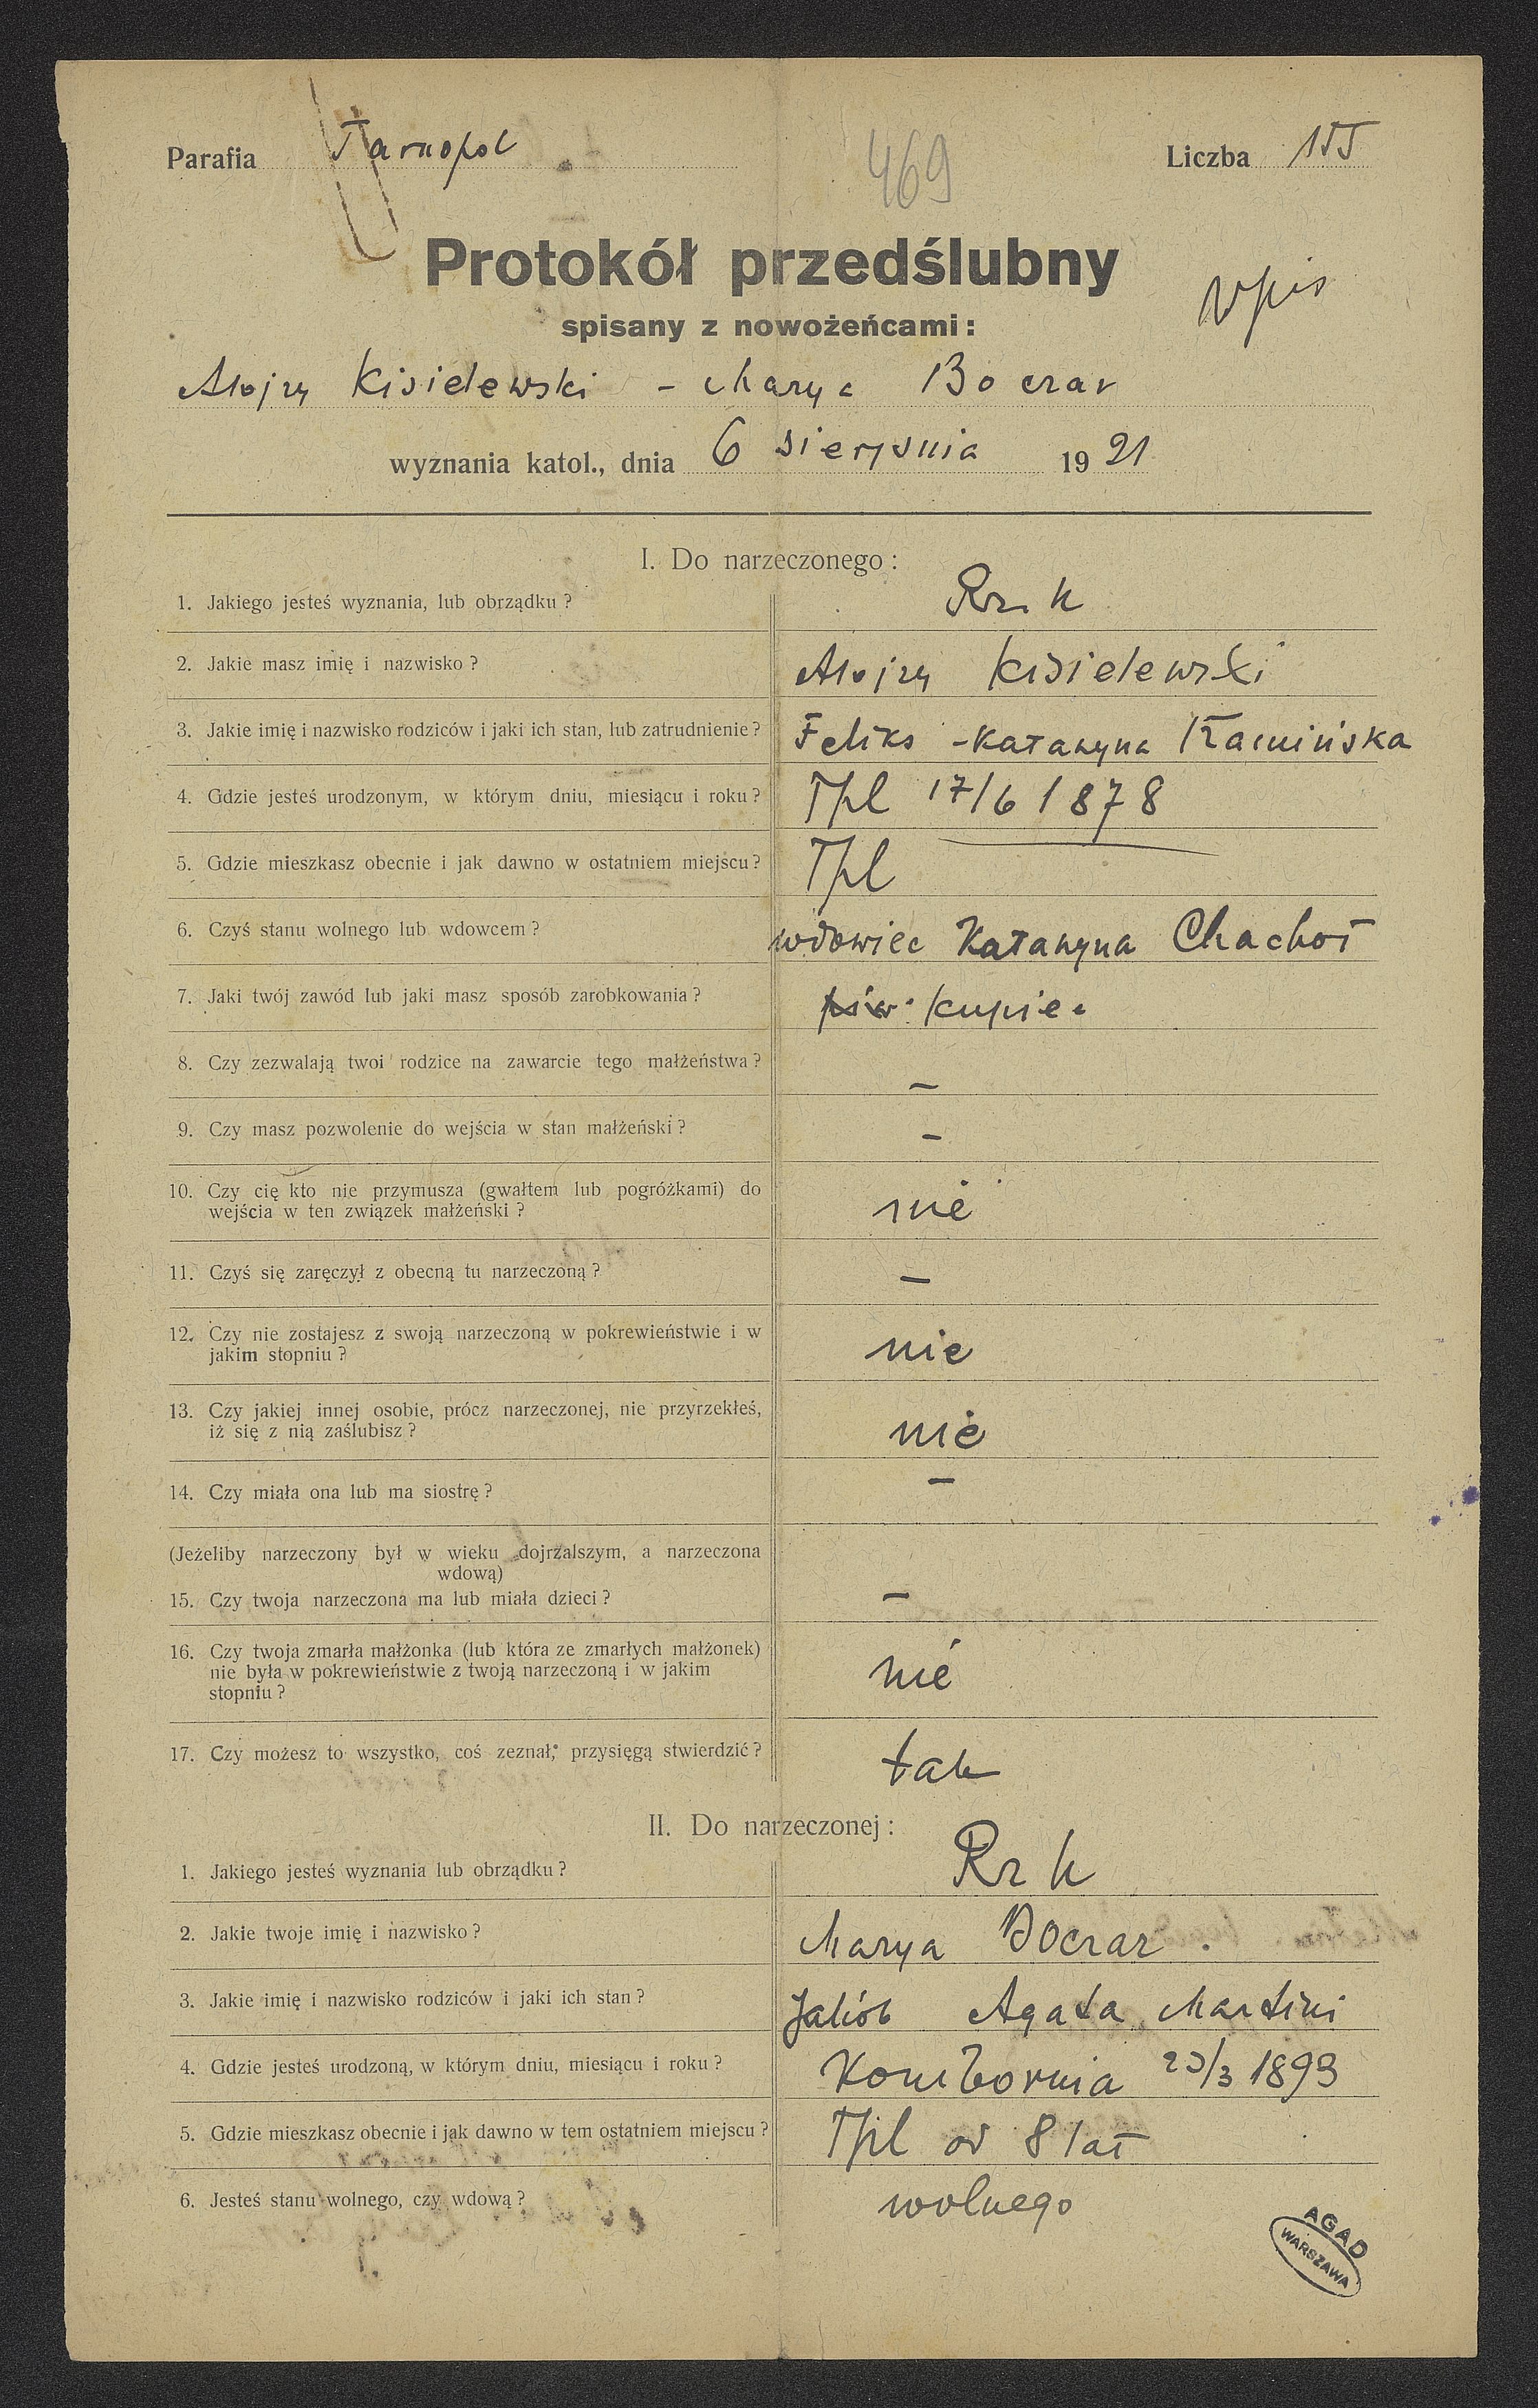 Parafia Tarnopol
469
Liczba 155
Protokół przedślubny
Wpis
spisany z nowożeńcami:
Alojzy Kisielewski - Marya Boczar
wyznania katol., dnia 6 sierpnia 1921
I. Do narzeczonego:
1. Jakiego jesteś wyznania, lub obrządku? Rz. k
2. Jakie masz imię i nazwisko? Alojzy Kisielewski
3. Jakie imię i nazwisko rodziców i jaki ich stan, lub zatrudnienie? Feliks - Katarzyna Kamińska
4. Gdzie jesteś urodzonym, w którym dniu, miesiącu i roku? Tpl 17/6 1878
5. Gdzie mieszkasz obecnie i jak dawno w ostatniem miejscu? Tpl
6. Czyś stanu wolnego lub wdowcem? wdowiec Katarzyna Chachoł
7. Jaki twój zawód lub jaki masz sposób zarobkowania? kupiec
8. Czy zezwalają twoi rodzice na zawarcie tego małżeństwa? –
9. Czy masz pozwolenie do wejścia w stan małżeński? –
10. Czy cię kto nie przymusza (gwałtem lub pogróżkami) do
wejścia w ten związek małżeński? nie
11. Czyś się zaręczył z obecną tu narzeczoną? –
12. Czy nie zostajesz z swoją narzeczoną w pokrewieństwie i w
jakim stopniu? nie
13. Czy jakiej innej osobie, prócz narzeczonej, nie przyrzekłeś,
iż się z nią zaślubisz? nie
14. Czy miała ona lub ma siostrę? –
(Jeżeliby narzeczony był w wieku dojrzalszym, a narzeczona
wdową)
15. Czy twoja narzeczona ma lub miała dzieci? –
16. Czy twoja zmarła małżonka (lub która ze zmarłych małżonek)
nie była w pokrewieństwie z twoją narzeczoną i w jakim
stopniu? nie
17. Czy możesz to wszystko, coś zeznał, przysięgą stwierdzić? tak
II. Do narzeczonej:
1. Jakiego jesteś wyznania lub obrządku? Rz k
2. Jakie twoje imię i nazwisko? Marya Boczar.
3. Jakie imię i nazwisko rodziców i jaki ich stan? Jakób Agata Martini
4. Gdzie jesteś urodzoną, w którym dniu, miesiącu i roku? Kombornia 23/3 1893
5. Gdzie mieszkasz obecnie i jak dawno w tem ostatniem miejscu? Tpl od 8 lat
6. Jesteś stanu wolnego, czy wdową? wolnego
AGAD
WARSZAWA